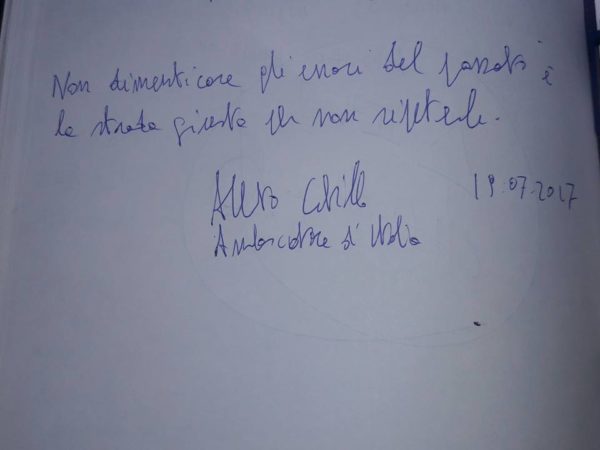 Non dimenticare gli errori del passato è
la strada giusta per non ripeterli.
Alberto Cutillo
19.07.2017
Ambasciatore d'Italia